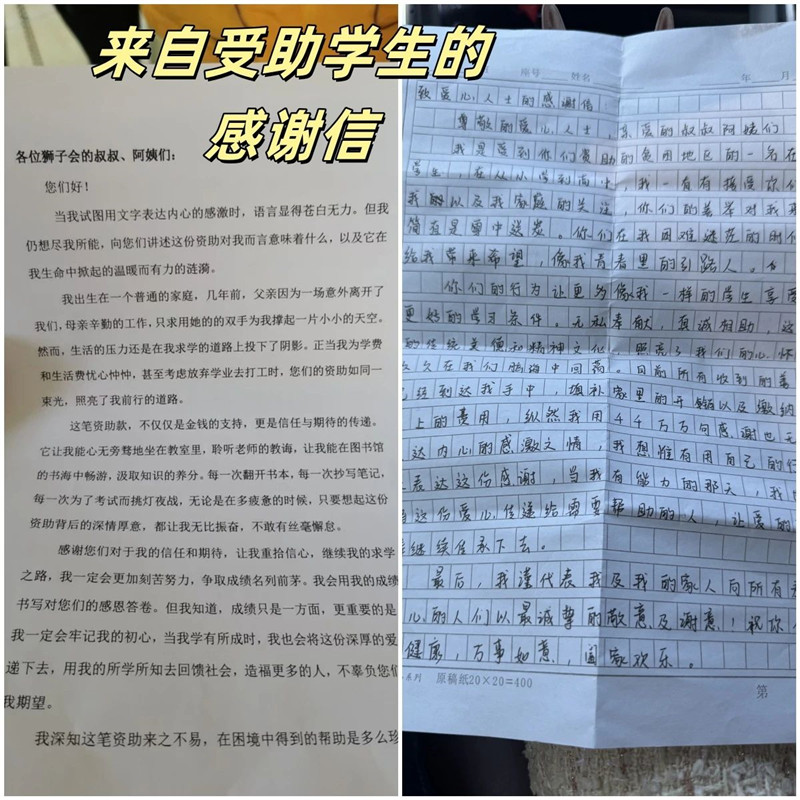 来自受助学生的
感谢信
各位狮子会的叔叔、阿姨们：
您们好！
当我试图用文字表达内心的感激时，语言显得苍白无力。但我
仍想尽我所能，向您们讲述这份资助对我而言意味着什么，以及它在
我生命中掀起的温暖而有力的涟漪。
我出生在一个普通的家庭，几年前，父亲因为一场意外离开了
我们，母亲辛勤的工作，只求用她的的双手为我撑起一片小小的天空。
然而，生活的压力还是在我求学的道路上投下了阴影。正当我为学费
和生活费忧心忡忡，甚至考虑放弃学业去打工时，您们的资助如同一
束光，照亮了我前行的道路。
这笔资助款，不仅仅是金钱的支持，更是信任与期待的传递。
它让我能心无旁骛地坐在教室里，聆听老师的教诲，让我能在图书馆
的书海中畅游，汲取知识的养分。每一次翻开书本，每一次抄写笔记，
每一次为了考试而挑灯夜战，无论是在多疲惫的时候，只要想起这份
资助背后的深情厚意，都让我无比振奋，不敢有丝毫懈怠。
感谢您们对于我的信任和期待，让我重拾信心，继续我的求学
之路，我一定会更加刻苦努力，争取成绩名列前茅。我会用我的成绩
书写对您们的感恩答卷。但我知道，成绩只是一方面，更重要的是
我一定会牢记我的初心，当我学有所成时，我也会将这份深厚的爱
递下去，用我的所学所知去回馈社会，造福更多的人，不辜负您们
我期望。
我深知这笔资助来之不易，在困境中得到的帮助是多么珍
座号 姓名 年 月
致爱心人士的感谢信
尊敬的爱心人士，亲爱的叔叔阿姨们
我是受到你们资助的贫困地区的一名在
学生，在从小学到高中，我一直有接受你们
我以及我家庭的关注，你们的善举对我来
简直是雪中送炭。你们在我困难迷茫的时候
给我带来希望，像我青春里的引路人。
你们的行为让更多像我一样的学生享受
更好的学习条件。无私奉献，真诚相助，这
的传统美德和精神文化，照亮了我们的心怀
久久在我们脑海中回荡。目前所有收到的善
已经到达我手中，填补家里的开销以及缴纳
上的费用，纵然我用千千万万句感谢也无
达内心的感激之情，我想惟有用自己的行
表达这份感谢，当我有能力的那天，我
这份爱心传递给需要帮助的人，让爱的
继续传承下去。
最后，我谨代表我及我的家人向所有
心的人们以最诚挚的敬意及谢意！祝你
健康，万事如意，阖家欢乐。
原稿纸20×20=400 第